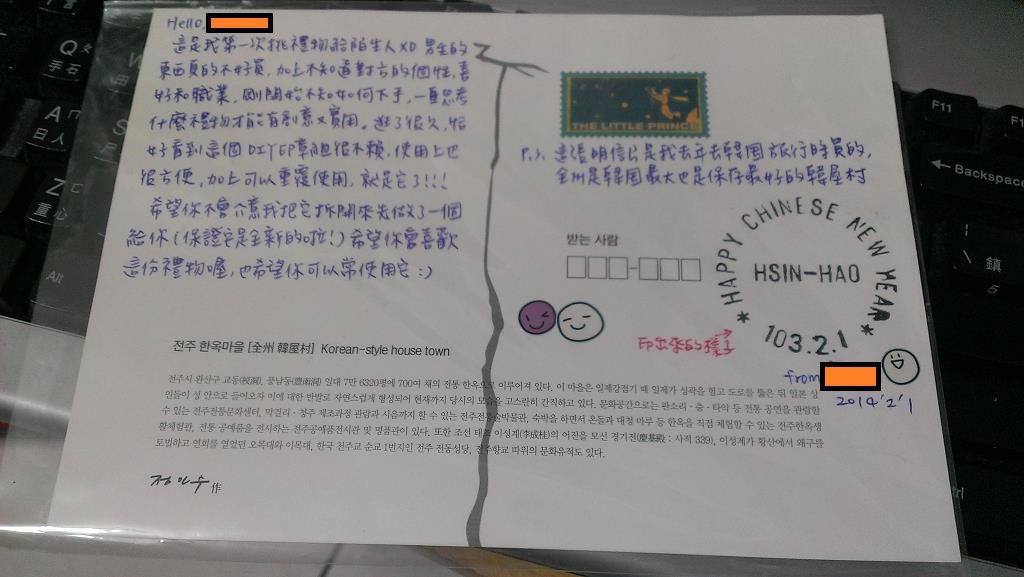 Hello,
這是我第一次挑禮物給陌生人XD 男生的
東西真的不好買，加上不知道對方的個性、喜
好和職業，剛開始不知如何下手，一直思考
什麼禮物才能有創意又實用。逛了很久，恰
好看到這個DIY印章組很不賴，使用上也
很方便，加上可以重覆使用，就是它了!!!
希望你不會介意我把它拆開來先做了一個
給你(保證它是全新的啦!)希望你會喜歡
這份禮物喔，也希望你可以常使用它:)
THE LITTLE PRINCE
P.S. 這張明信片是我去年去韓国旅行時買的，
全州是韓国最大也是保存最好的韓屋村
받는 사람
HAPPY CHINESE NEW YEAR
HSIN-HAO
103.2.1
印出來的樣子
from
2014'2'1
전주 한옥마을 [全州 韓屋村] Korean-style house town
전주시 완산구 교동(校洞), 풍남동(豊南洞) 일대 7만 6320평에 700여 채의 전통 한옥으로 이루어져 있다. 이 마을은 일제강점기 때 일제가 성곽을 헐고 도로를 뚫은 뒤 일본 상
인들이 성 안으로 들어오자 이에 대한 반발로 자연스럽게 형성되어 현재까지 당시의 모습을 고스란히 간직하고 있다. 문화공간으로는 판소리·춤·타악 등 전통 공연을 관람할
수 있는 전주전통문화센터, 막걸리·청주 제조과정 관람과 시음까지 할 수 있는 전주전통술박물관, 숙박을 하면서 온돌과 대청 마루 등 한옥을 직접 체험할 수 있는 전주한옥생
활체험관, 전통 공예품을 전시하는 전주공예품전시관 및 명품관이 있다. 또한 조선 태조 이성계(李成桂)의 어진을 모신 경기전(慶基殿 : 사적 339), 이성계가 황산에서 왜구를
토벌하고 연회를 열었던 오목대와 이목대, 한국 천주교 순교 1번지인 전주 전동성당, 전주향교 따위의 문화유적도 있다.
作
Q
手 石
A
日 人
Z
重 心
Alt
F11
Backspace
鎮
5